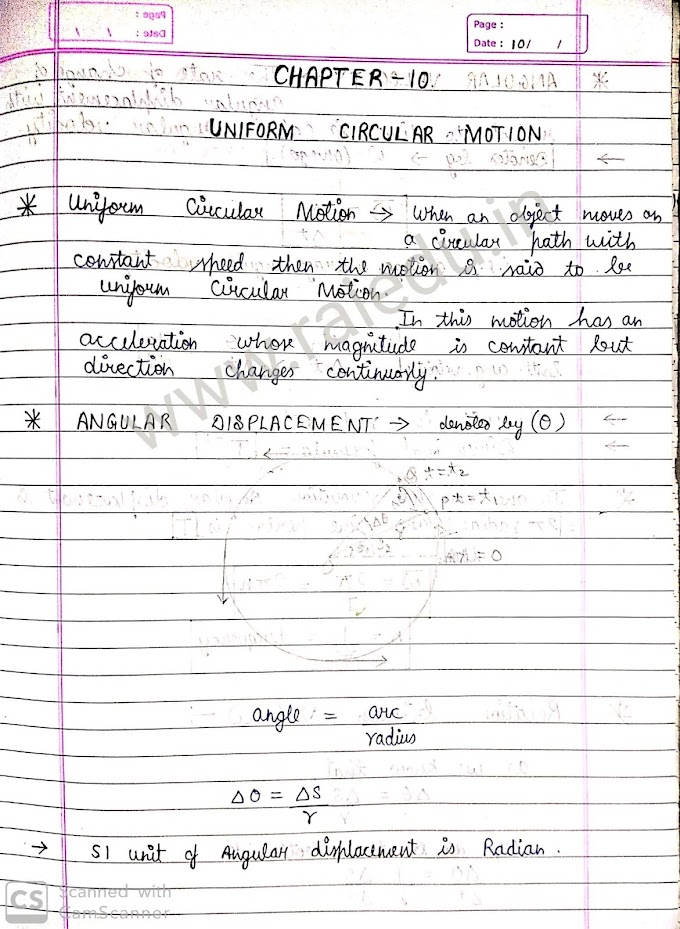 Page :
Date : 10/ /
CHAPTER - 10
UNIFORM CIRCULAR MOTION
* Uniform Circular Motion → When an object moves on
a circular path with
constant speed then the motion is said to be
uniform Circular Motion.
In this motion has an
acceleration whose magnitude is constant but
direction changes continuously.
* ANGULAR DISPLACEMENT → denoted by (θ)
t=t₂
t=t₁
Δθ
angle = arc
radius
Δθ = ΔS
r
→ SI unit of Angular displacement is Radian.
www.raiedu.in
CS Scanned with
CamScanner